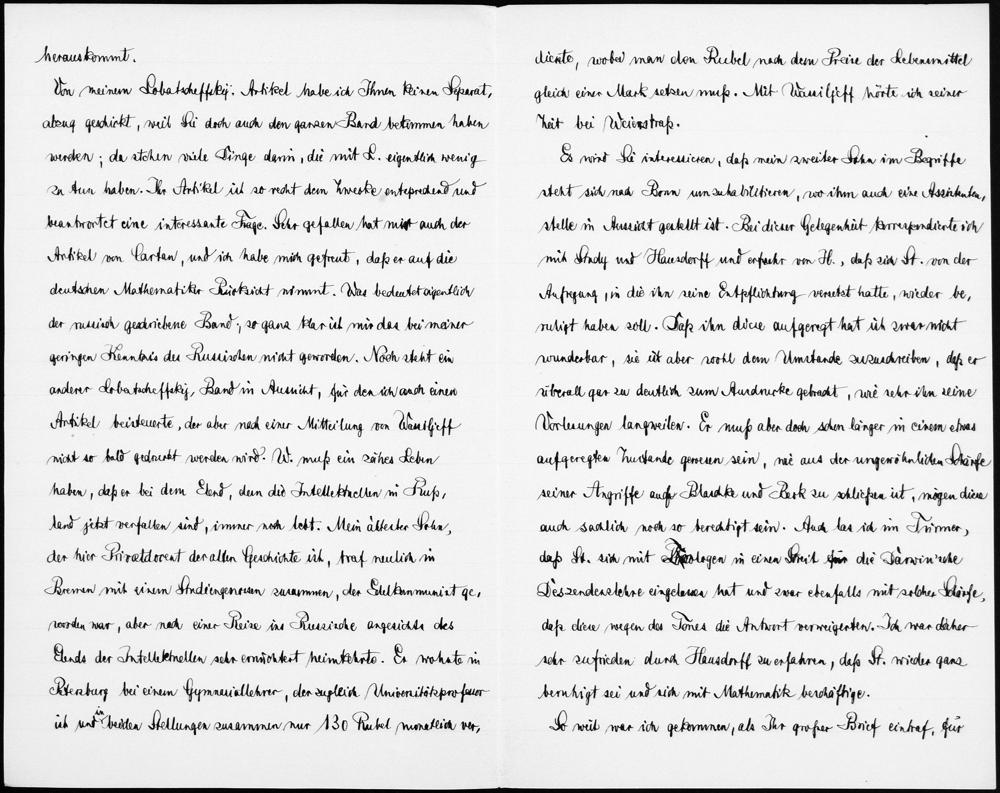 herauskommt.
Von meinem Lobatscheffskij-Artikel habe ich Ihnen keinen Separat-
abzug geschickt, weil Sie doch auch den ganzen Band bekommen haben
werden; da stehen viele Dinge darin, die mit L. eigentlich wenig
zu tun haben. Ihr Artikel ist so recht dem Zwecke entsprechend und
beantwortet eine interessante Frage. Sehr gefallen hat mir auch der
Artikel von Cartan, und ich habe mich gefreut, daß er auf die
deutschen Mathematiker Rücksicht nimmt. Was bedeutet eigentlich
der russisch geschriebene Band; so ganz klar ist mir das bei meiner
geringen Kenntnis des Russischen nicht geworden. Noch steht ein
anderer Lobatscheffskij-Band in Aussicht, für den ich auch einen
Artikel beisteuerte, der aber nach einer Mitteilung von Wassiljeff
nicht so bald gedruckt werden wird. W. muß ein zähes Leben
haben, daß er bei dem Elend, dem die Intellektuellen in Ruß-
land jetzt verfallen sind, immer noch lebt. Mein ältester Sohn,
der hier Privatdozent der alten Geschichte ist, traf neulich in
Bremen mit einem Studiengenossen zusammen, der Edelkommunist ge-
worden war, aber nach einer Reise ins Russische angesichts des
Elends der Intellektuellen sehr ernüchtert heimkehrte. Er wohnte in
Petersburg bei einem Gymnasiallehrer, der zugleich Universitätsprofessor
ist und in beiden Stellungen zusammen nur 130 Rubel monatlich ver-
diente, wobei man den Rubel nach dem Preise der Lebensmittel
gleich einer Mark setzen muß. Mit Wassiljeff hörte ich seiner
Zeit bei Weierstraß.
Es wird Sie interessieren, daß mein zweiter Sohn im Begriffe
steht sich nach Bonn umzuhabilitieren, wo ihm auch eine Assistenten-
stelle in Aussicht gestellt ist. Bei dieser Gelegenheit korrespondierte ich
mit Study und Hausdorff und erfuhr von H., daß sich St. von der
Aufregung, in die ihn seine Entpflichtung versetzt hatte, wieder be-
ruhigt haben soll. Daß ihn diese aufgeregt hat ist zwar nicht
wunderbar, sie ist aber wohl dem Umstande zuzuschreiben, daß er
überall gar zu deutlich zum Ausdrucke gebracht, wie sehr ihn seine
Vorlesungen langweilen. Er muß aber doch schon länger in einem etwas
aufgeregten Zustande gewesen sein, wie aus der ungewöhnlichen Schärfe
seiner Angriffe auf Blaschke und Beck zu schließen ist, mögen diese
auch sachlich noch so berechtigt sein. Auch las ich im Türmer,
daß St. sich mit in einen Streit für die Darwin'sche
Deszendenzlehre eingelassen hat und zwar ebenfalls mit solcher Schärfe,
daß diese wegen des Tones die Antwort verweigerten. Ich war daher
sehr zufrieden durch Hausdorff zu erfahren, daß St. wieder ganz
beruhigt sei und sich mit Mathematik beschäftige.
So weit war ich gekommen, als Ihr großer Brief eintraf, für